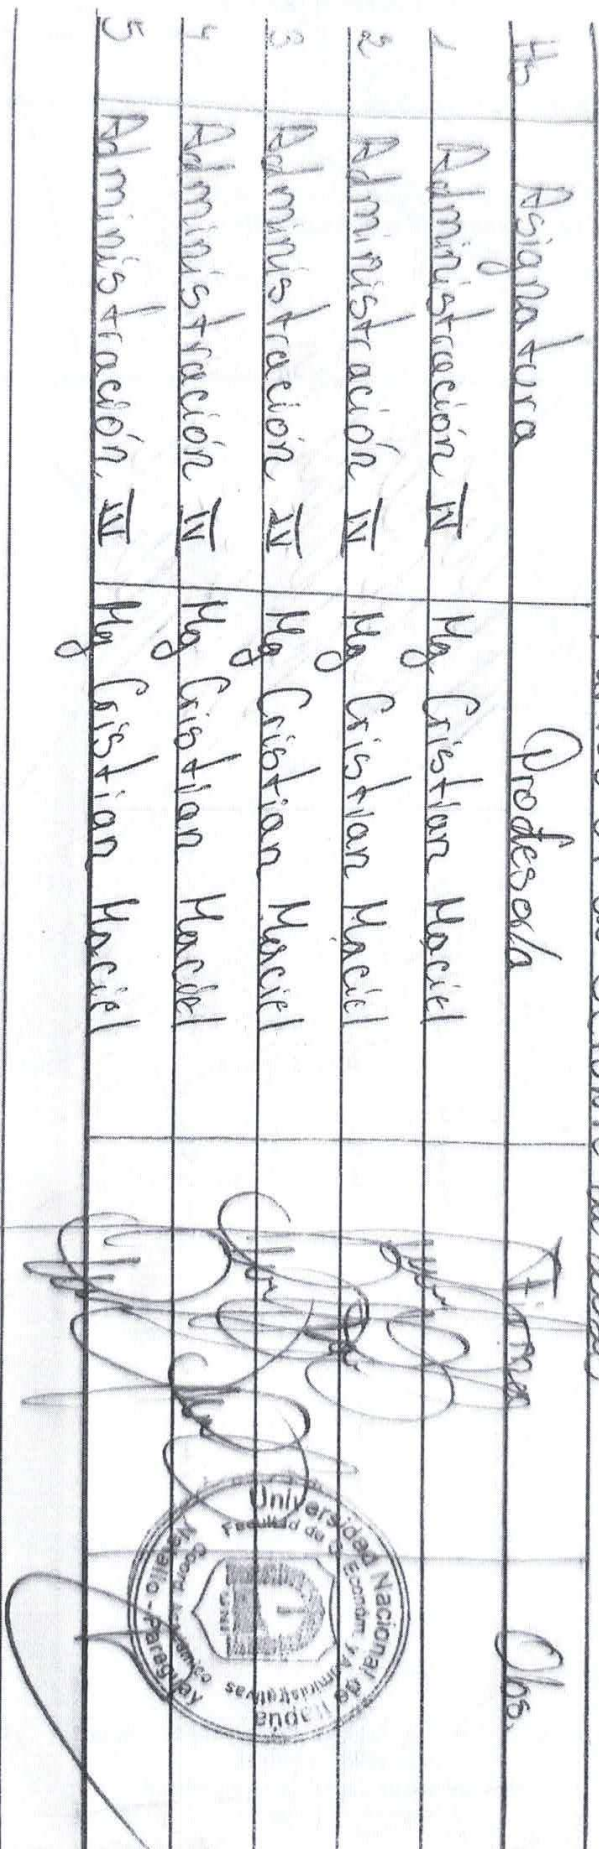 Hs Asignatura Profesor/a Firma Obs.
1 Administración IV Mg Cristian Maciel
2 Administración IV Mg Cristian Maciel
3 Administración IV Mg Cristian Maciel
4 Administración IV Mg Cristian Maciel
5 Administración IV Mg Cristian Maciel
Universidad Nacional de Itapúa
Facultad de
y Administrativas
Natalio - Paraguay
UNI